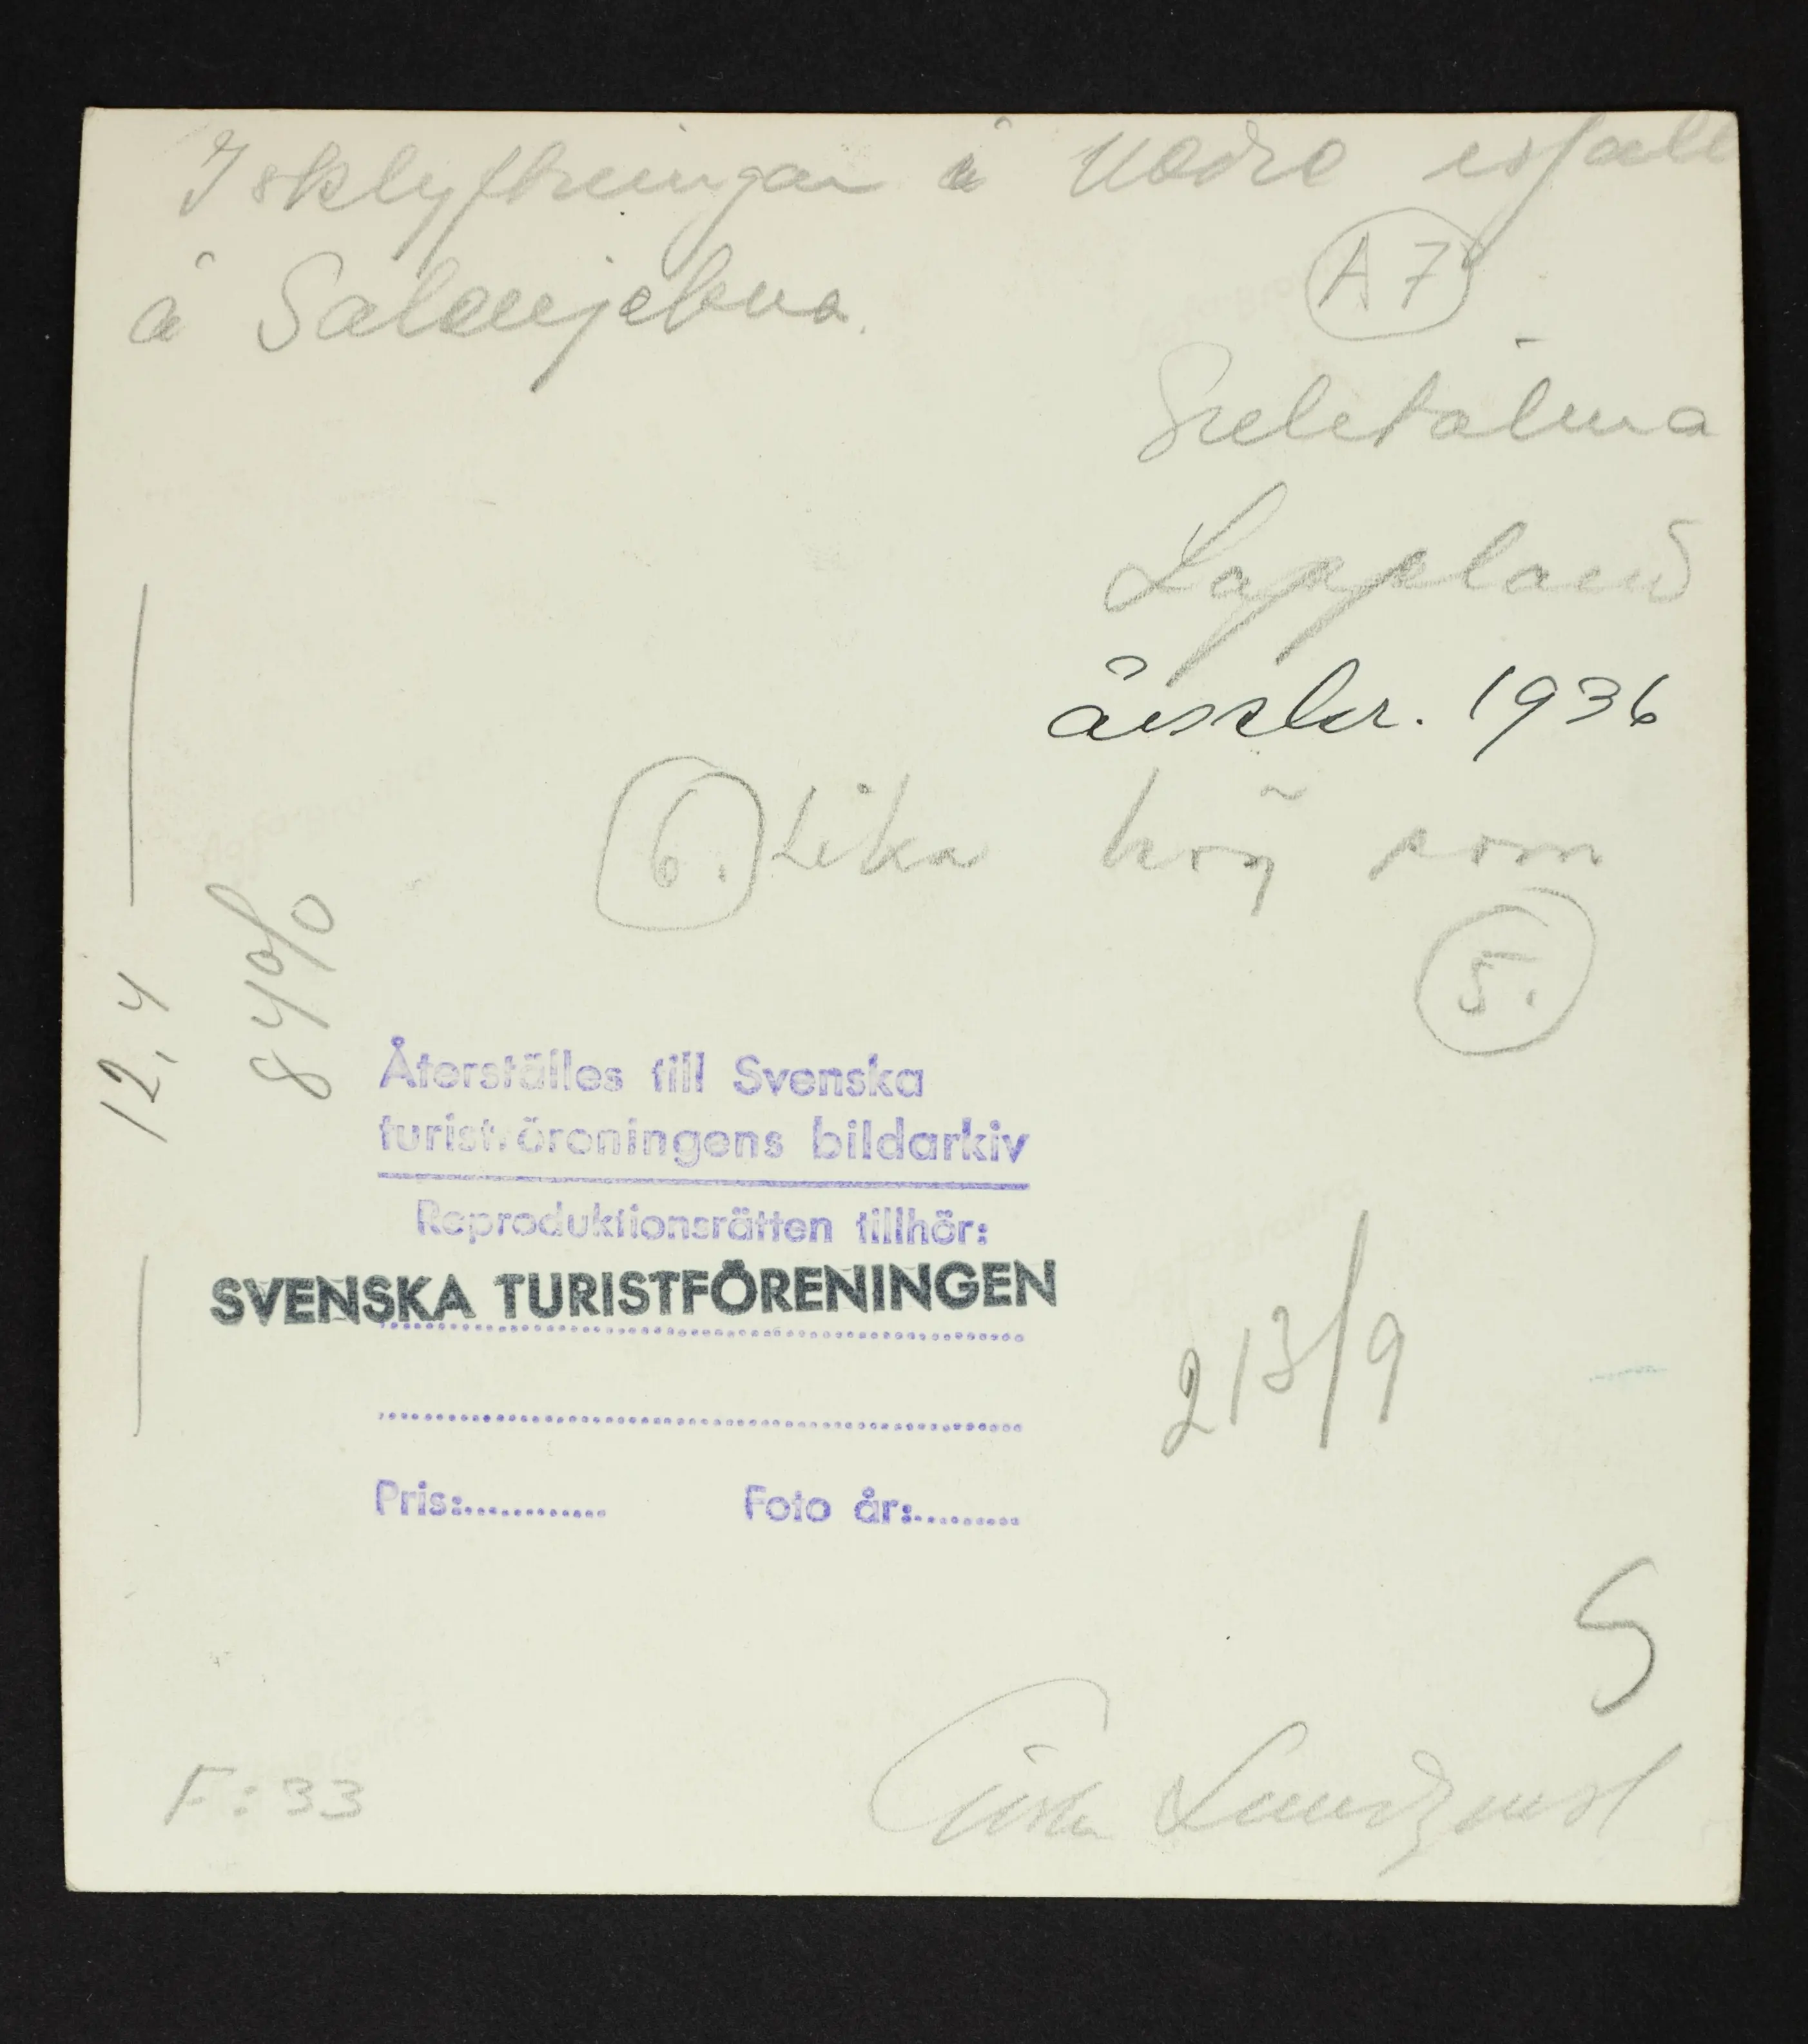 Isklyftningar å nedre isfall
å Salajekna.
A 7
Sulitälma
Lappland
årsskr. 1936
6. Lika hög som
5.
12,4
84%
Återställes till Svenska
turistföreningens bildarkiv
Reproduktionsrätten tillhör:
SVENSKA TURISTFÖRENINGEN
213/9
Pris:............ Foto år:.........
S
F:33
Gösta Lundquist